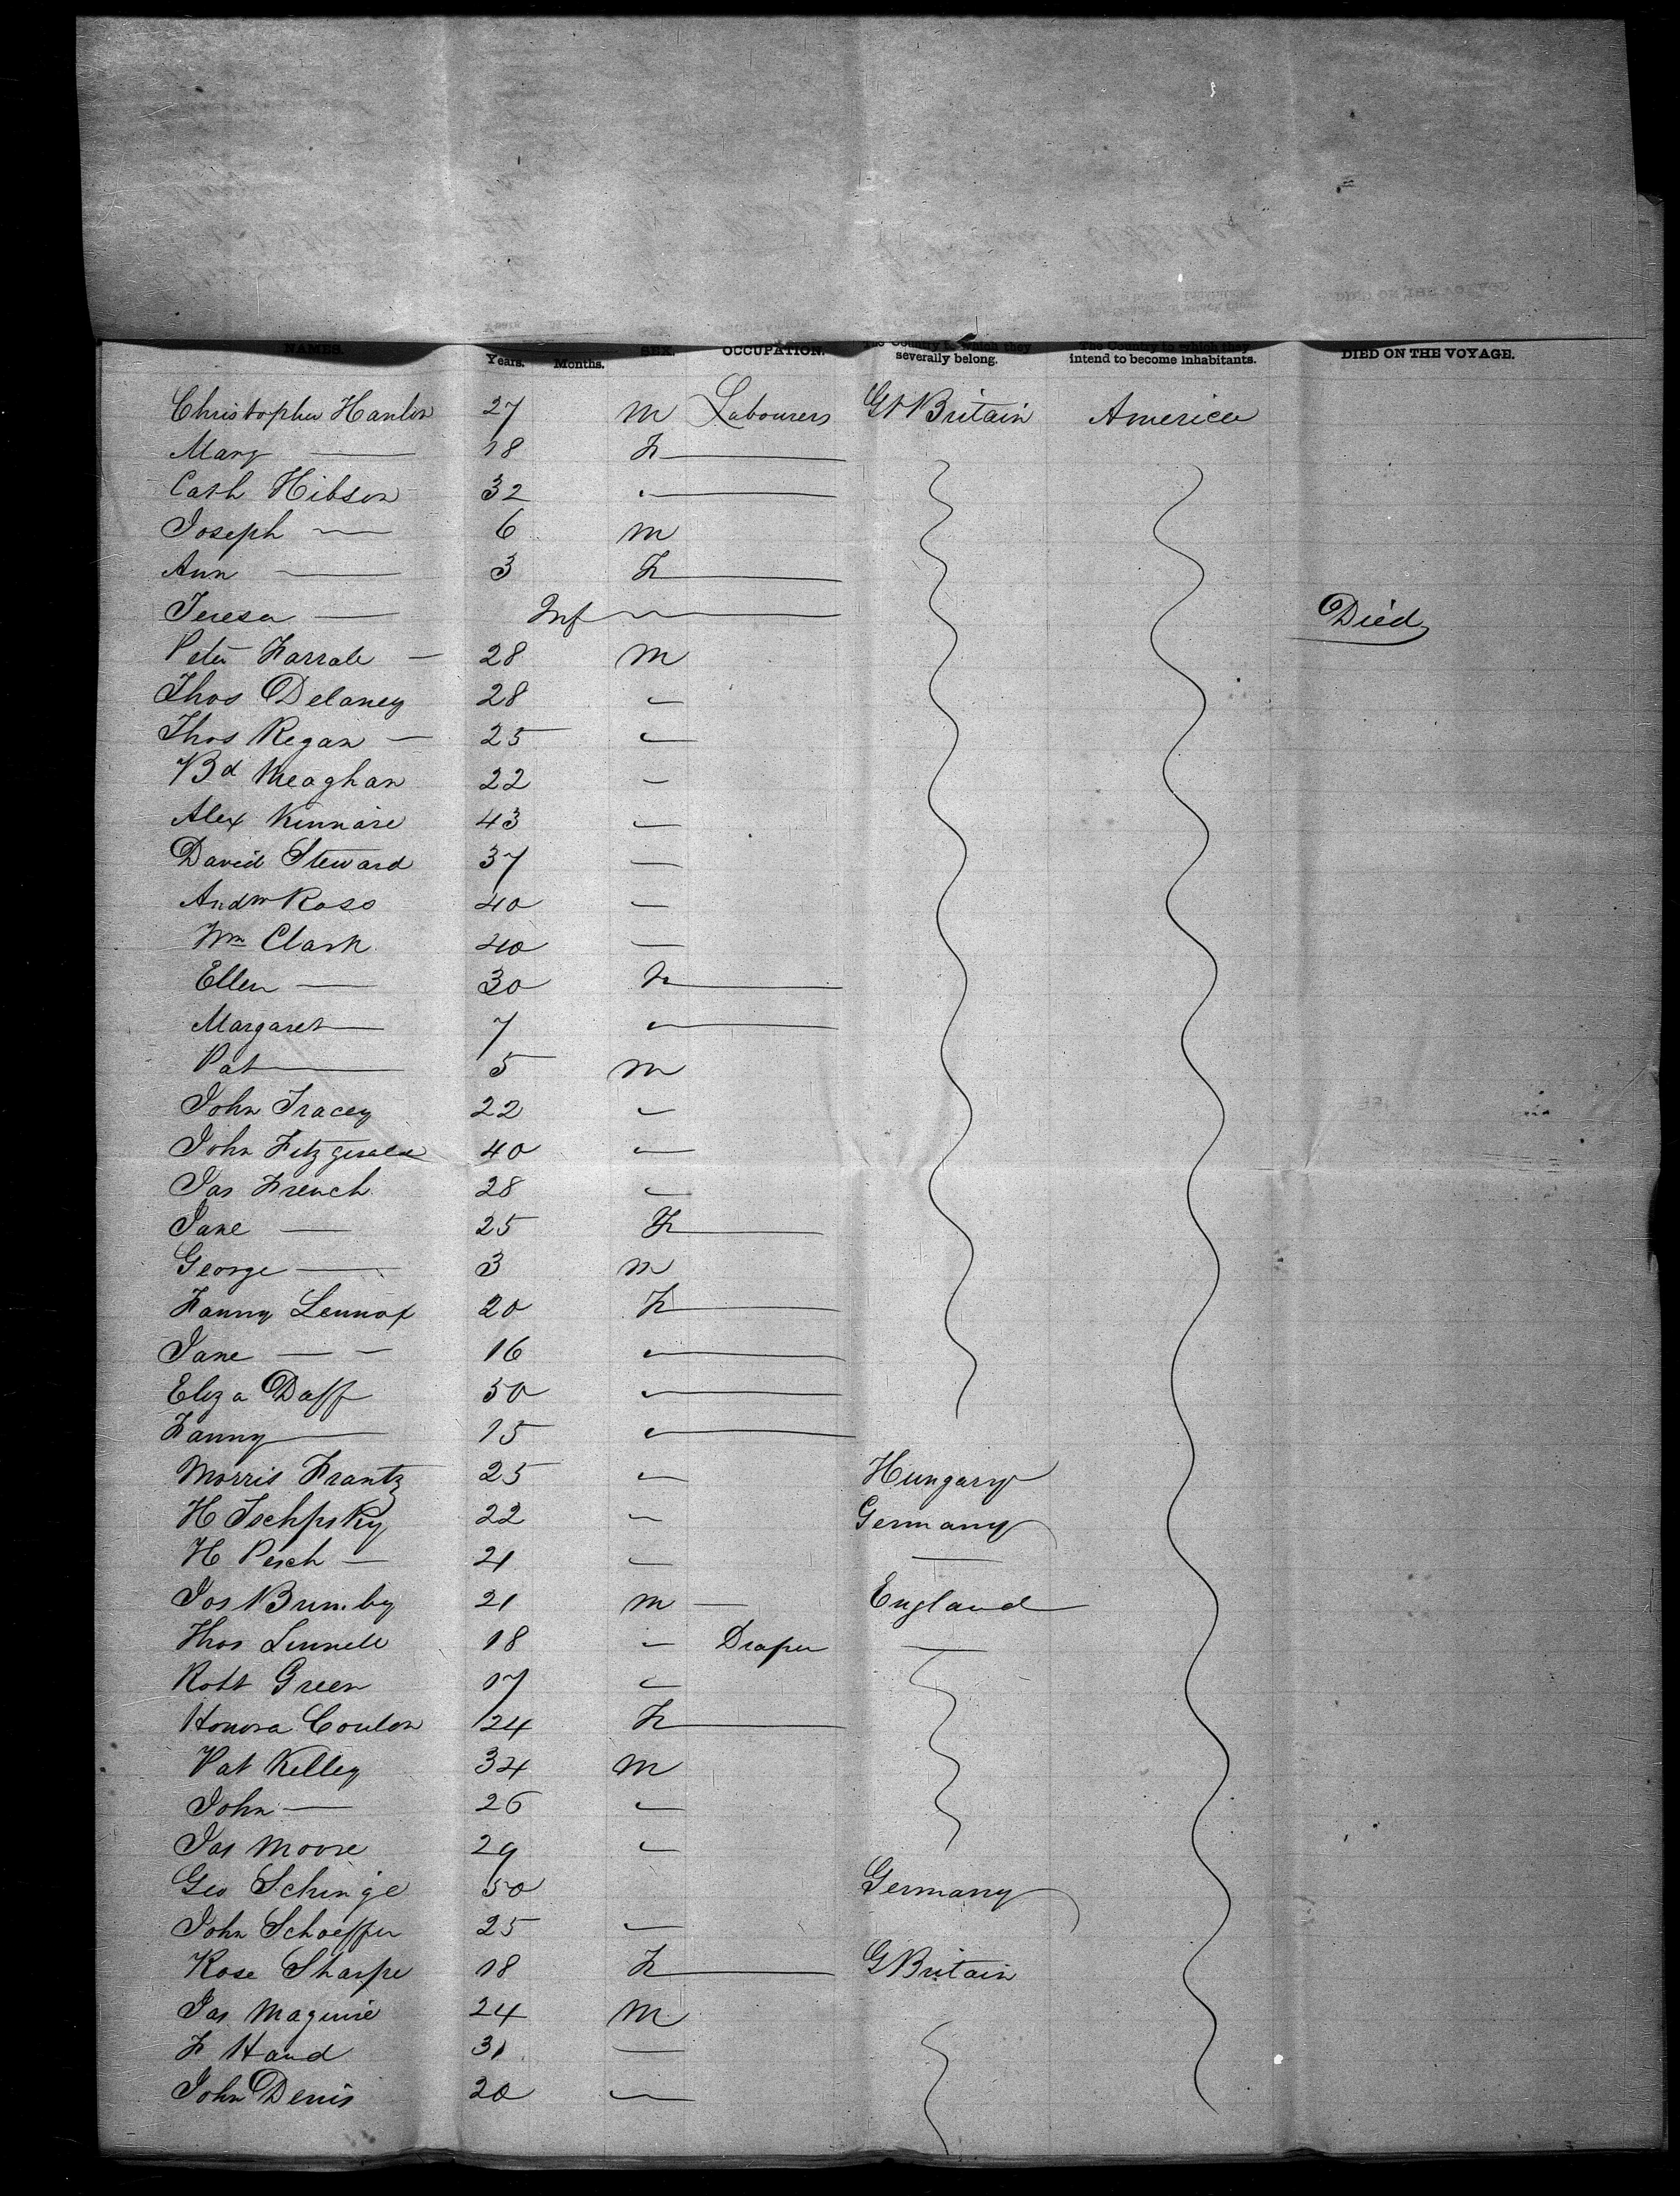 NAMES. Years. Months. SEX. OCCUPATION. The Country to which they severally belong. The Country to which they intend to become inhabitants. DIED ON THE VOYAGE.
Christopher Hanlon 27 M Labourers Gt Britain America
Mary — 18 F —
Cath Hibson 32 " —
Joseph — 6 M
Ann — 3 F —
Teresa — Inf — Died
Peter Farrale — 28 M
Thos Delaney 28 "
Thos Regan — 25 "
Bd Meaghan 22 "
Alex Kinnare 43 "
David Steward 37 "
Andw Ross 40 "
Wm Clark 40 "
Ellen — 30 F —
Margaret — 7 " —
Pat — 5 M
John Tracey 22 "
John Fitzgerald 40 "
Jas French 28 "
Jane — 25 F —
George — 3 M
Fanny Lennox 20 F —
Jane — — 16 " —
Eliza Daff 50 " —
Fanny — 15 " —
Morris Frantz 25 " Hungary
H 22 " Germany
H Pesch — 21 " —
Jos Brumby 21 M — England
Thos Linnell 18 " Draper —
Robt Green 17 "
Honora Conlon 24 F —
Pat Kelley 34 M
John — 26 "
Jas Moore 29 "
Geo Schinge 50 Germany
John Schoeffer 25 "
Rose Sharpe 18 F — G Britain
Jas Maguire 24 M
F Hand 31 "
John Denis 20 "